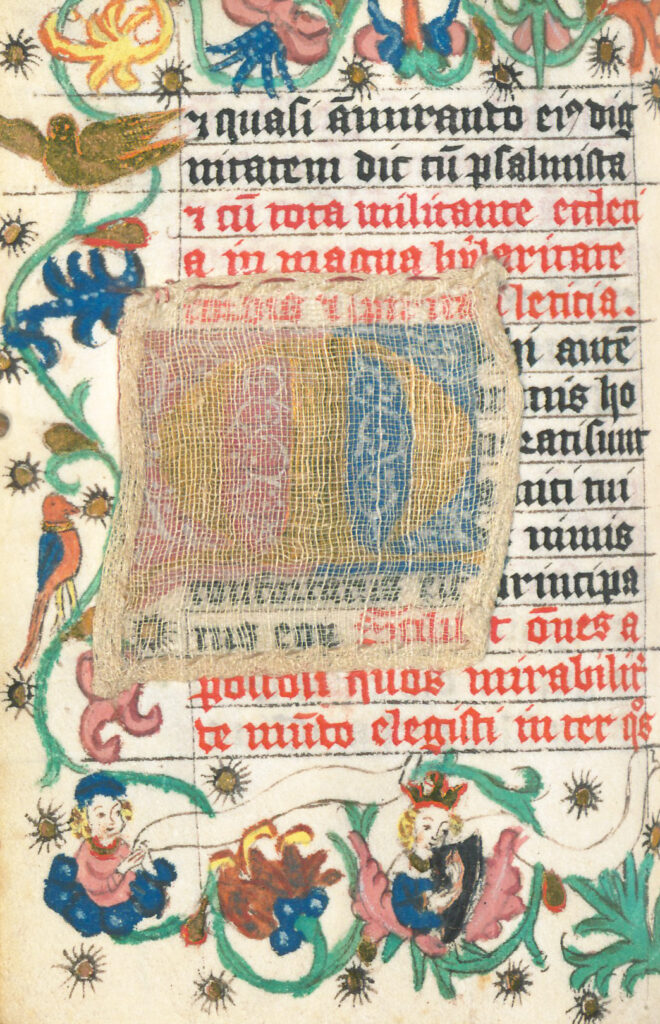 ⁊ quasi āmirando ei⁹ dig
nitatem dic cū psalmista
⁊ cū tota militante ecclesi
a in magna hylaritate
leticia.
hi autē
nimis ho
ratisunt
mici tui
nimis
principa
tus eoru t ōnes a
postoli quos mirabilit᷑
de mūdo elegisti inter q̊s